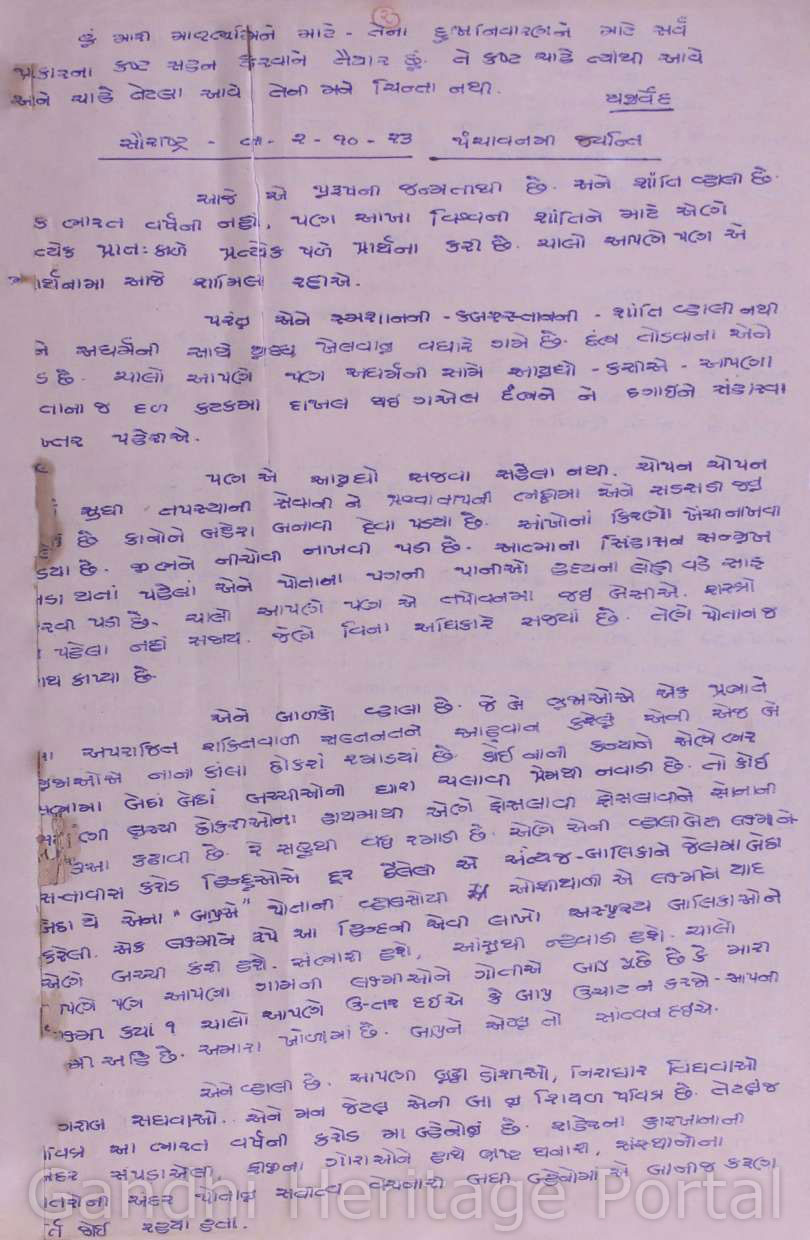 ૨
હું મારા માટે - તેના દુઃખનિવારણને માટે સર્વ
પ્રકારના કષ્ટ સહન કરવાને તૈયાર છું. તે કષ્ટ ચાહે ત્યાંથી આવે
અને ચાહે તેટલા આવે તેની મને ચિન્તા નથી.
સૌરાષ્ટ્ર - તા - ૨ - ૧૦ - ૨૩ પંચાવનમી જયન્તિ
આજે એ પુરૂષની જન્મતીથી છે. અને શાંતિ વ્હાલી છે.
ક ભારત વર્ષની નહીં, પણ આખા વિશ્વની શાંતિને માટે એણે
ત્યેક પ્રાતઃકાળે પ્રત્યેક પળે પ્રાર્થના કરી છે. ચાલો આપણે પણ એ
ાર્થનામાં આજે શામિલ રહીએ.
પરંતુ એને સ્મશાનની - કબ્રસ્તાનની - શાંતિ વ્હાલી નથી
ને અધર્મની સાથે યુધ્ધ ખેલવાનુ વધારે ગમે છે. દંભ તોડવાના એને
ડ છે. ચાલો આપણે પણ અધર્મની સામે આયુધો - કસીએ - આપણા
તાના જ દળ કટકમા દાખલ થઇ ગએલ દંભને ને દગાઇને સંહારવા
ખ્તર પહેરીએ.
પણ એ આયુધો સજવા સહેલા નથી. ચોપન ચોપન
સુધી તપસ્યાની સેવાની ને ભઠ્ઠીમા એને સડસડી જવુ
છે કાનોને બહેરા બનાવી દેવા પડયા છે. આંખોનાં કિરણો ખેંચી નાખવા
ડયા છે. જીભને નીચોવી નાખવી પડી છે. આત્માના સિંહાસન સન્મુખ
થતાં પહેલાં એને પોતાના પગની પાનીઓ હૃદયના લોહી વડે સાફ
રવી પડી છે. ચાલો આપણે પણ એ તપોવનમા જઇ બેસીએ. શસ્ત્રો
પહેલા નહીં સજાય. જેણે વિના અધિકારે સજ્યાં છે. તેણે પોતાનાજ
ાથ કાપ્યા છે.
એને બાળકો વ્હાલા છે. જે બે ભુજાઓએ એક પ્રચંડ
અપરાજિત શક્તિવાળી સલ્તનતને આહ્વાન કરેલુ એની એજ બે
ભુજાઓએ નાના કાંલા છોકરાં રમાડયાં છે. કોઈ નાની કન્યાને એણે ભર
સભામા બેઠાં બેઠાં બચ્ચીઓની ધારા ચલાવી પ્રેમથી નવાડી છે. તો કોઈ
છોકરીઓના હાથમાથી એણે ફોસલાવી ફોસલાવીને સોનાની
કઢાવી છે. રે સહુથી વધુ રમાડી છે. એણે એની વ્હાલી બેટી લક્ષ્મીને
સત્તાવીસ કરોડ હિન્દુઓએ દૂર ઠેલેલી એ અંત્યજ-બાલિકાને જેલમા બેઠા
બેઠા યે એના "બાપુએ" પોતાની વ્હાલસોયી ઓશીયાળી એ લક્ષ્મીને યાદ
કરેલી. એક લક્ષ્મીને રૂપે આ હિન્દની એવી લાખો અસ્પૃશ્ય બાલિકાઓને
એણે બચ્ચી કરી હશે. સંભારી હશે, આંસુથી ન્હવાડી હશે. ચાલો
પણે પણ આપણા ગામની લક્ષ્મીઓને ગોતીએ બાપુ પૂછે છે કે મારી
ક્ષ્મી ક્યાં ? ચાલો આપણે ઉત્તર દઈએ કે બાપુ ઉચાટ ન કરજો - આપની
મી અહિં છે. અમારા ખોળામાં છે. બાપુને એટલુ તો સાંત્વન દઈએ.
એને વ્હાલી છે. આપણી બુઢ્ઢી ડોશીઓ, નિરાધાર વિધવાઓ
ગરીબ સધવાઓ.. એને મન જેટલુ એની બા નુ શિયળ પવિત્ર છે. તેટલુજ
વિત્ર આ ભારત વર્ષની કરોડ મા બ્હેનોનું છે. શહેરના કારખાનાની
અંદર સપડાએલી, ફીજીના ગોરાઓને હાથે ભ્રષ્ટ થનારી, સંસ્થાનોના
અંદર પોતાનુ સતીત્વ વેચનારી બધી બ્હેનોમા એ બાનીજ કરૂણ
ર્તિ જોઈ રહ્યા હતા.
Gandhi Heritage Portal